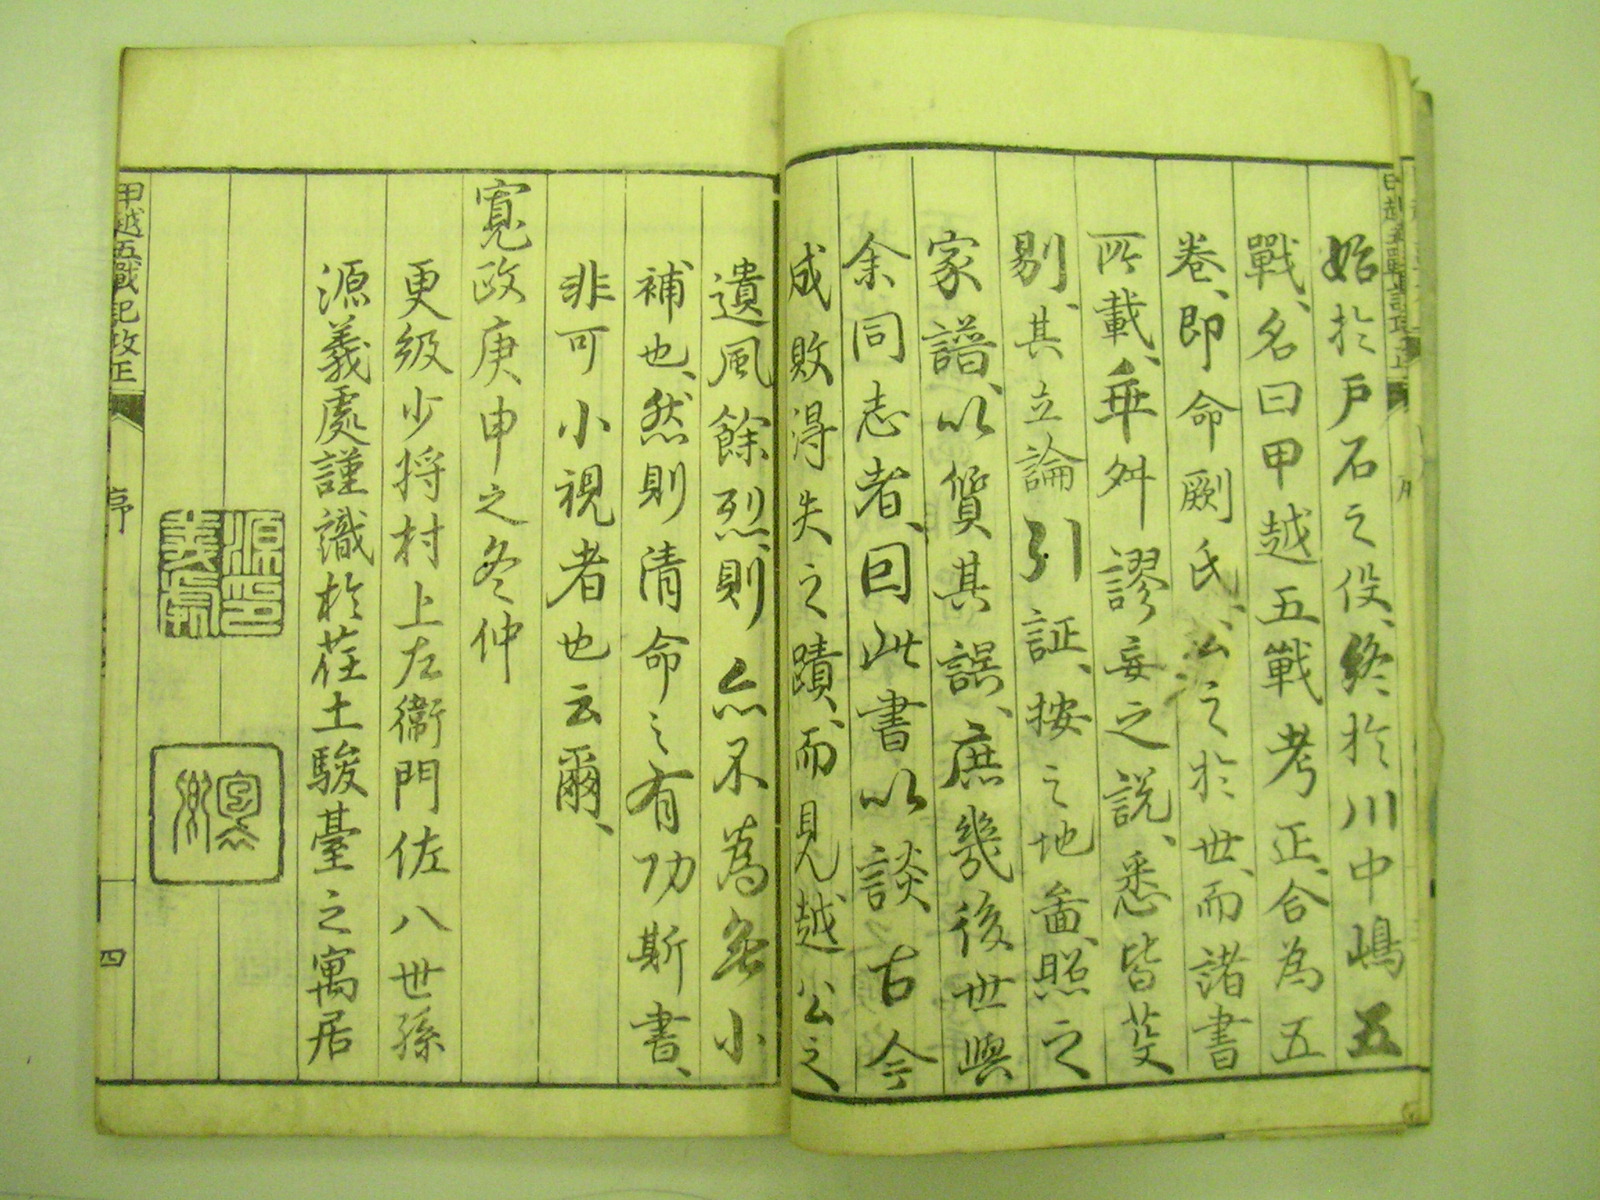 始於戸石之役、終於川中嶋五
戰、名曰甲越五戰考正、合為五
卷、即命劂氏、公之於世、而諸書
所載、乖舛謬妄之説、悉皆芟
剔、其立論引証、按之地啚、照之
家譜、以質其誤、庶幾後世與
余同志者、因此書以談古今
成敗得失之蹟、而見越公之
遺風餘烈、則亦不為無小
補也、然則清命之有功斯書、
非可小視者也云爾、
寛政庚申之冬仲
更級少将村上左衞門佐八世孫
源義處謹識於荏土駿臺之寓居
甲越五戰記攷正
序
四